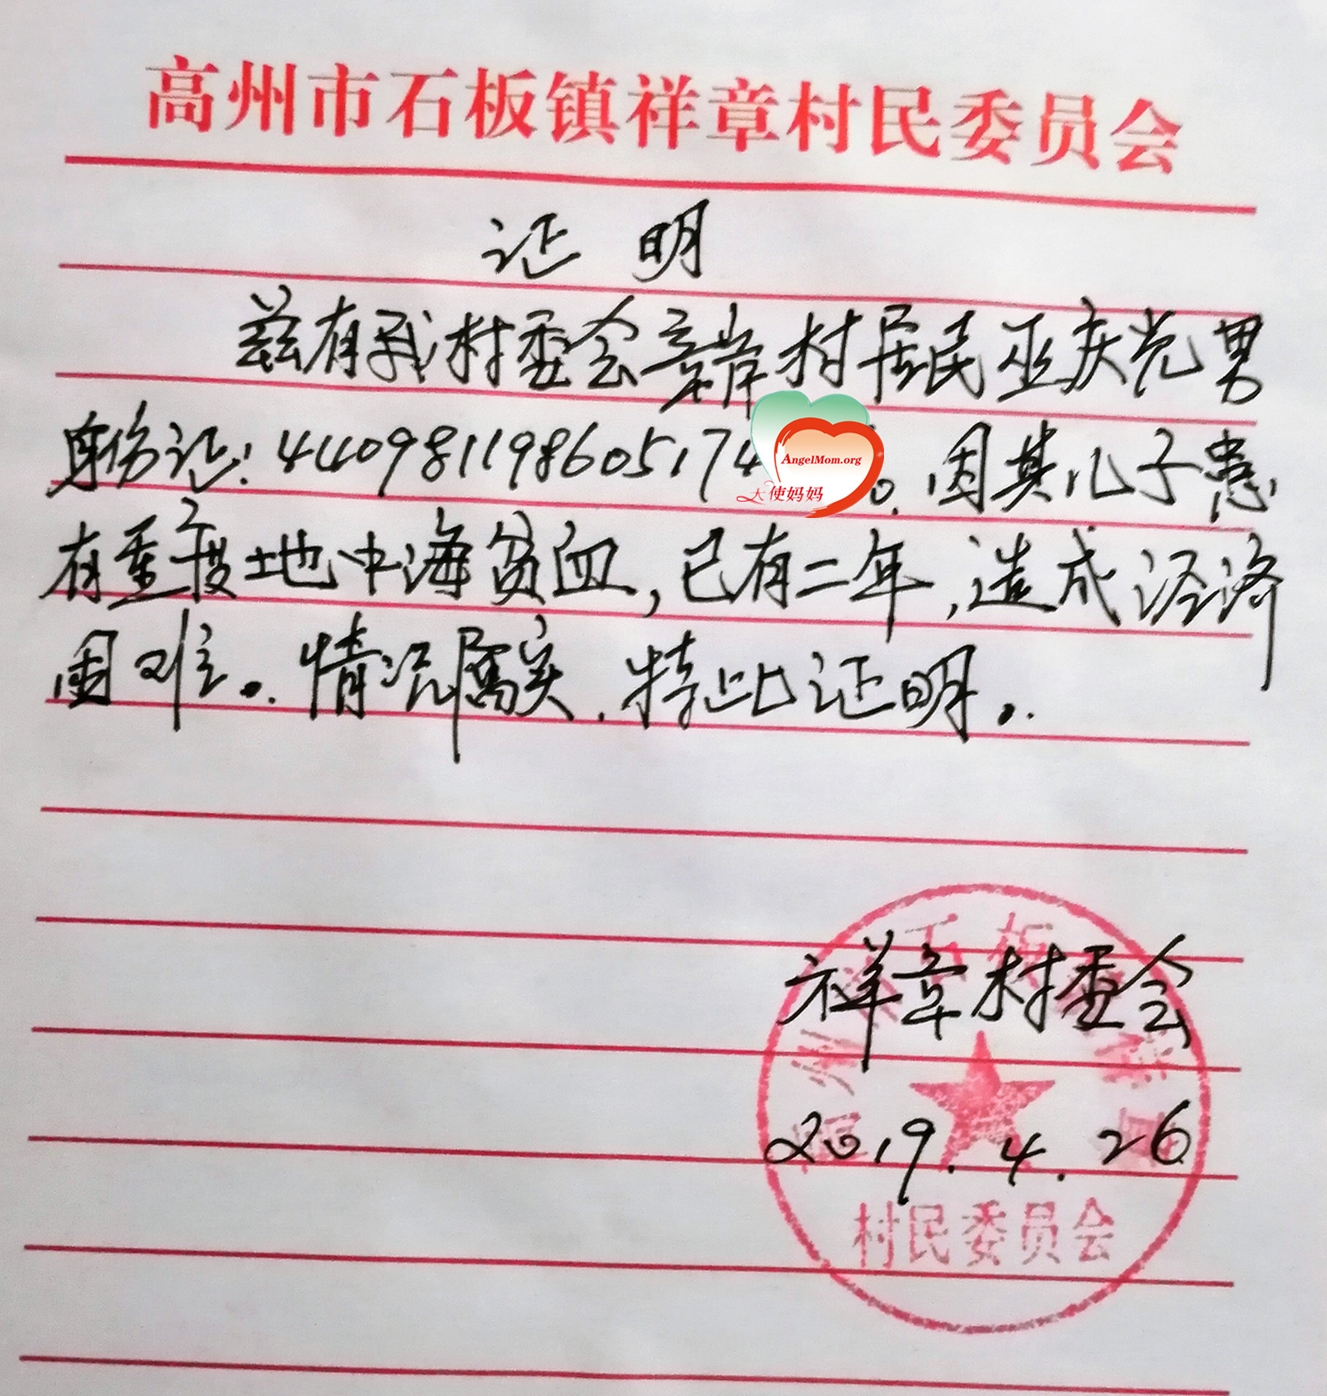 高州市石板镇祥章村民委员会
证 明
兹有我村委会章岸村居民巫庆党男
身份证:440981198605174
AngelMom.org
天使妈妈
。因其儿子患
有重度地中海贫血,已有二年,造成经济
困难。情况属实.特此证明。
石板
祥章村委会
2019.4.26
村民委员会